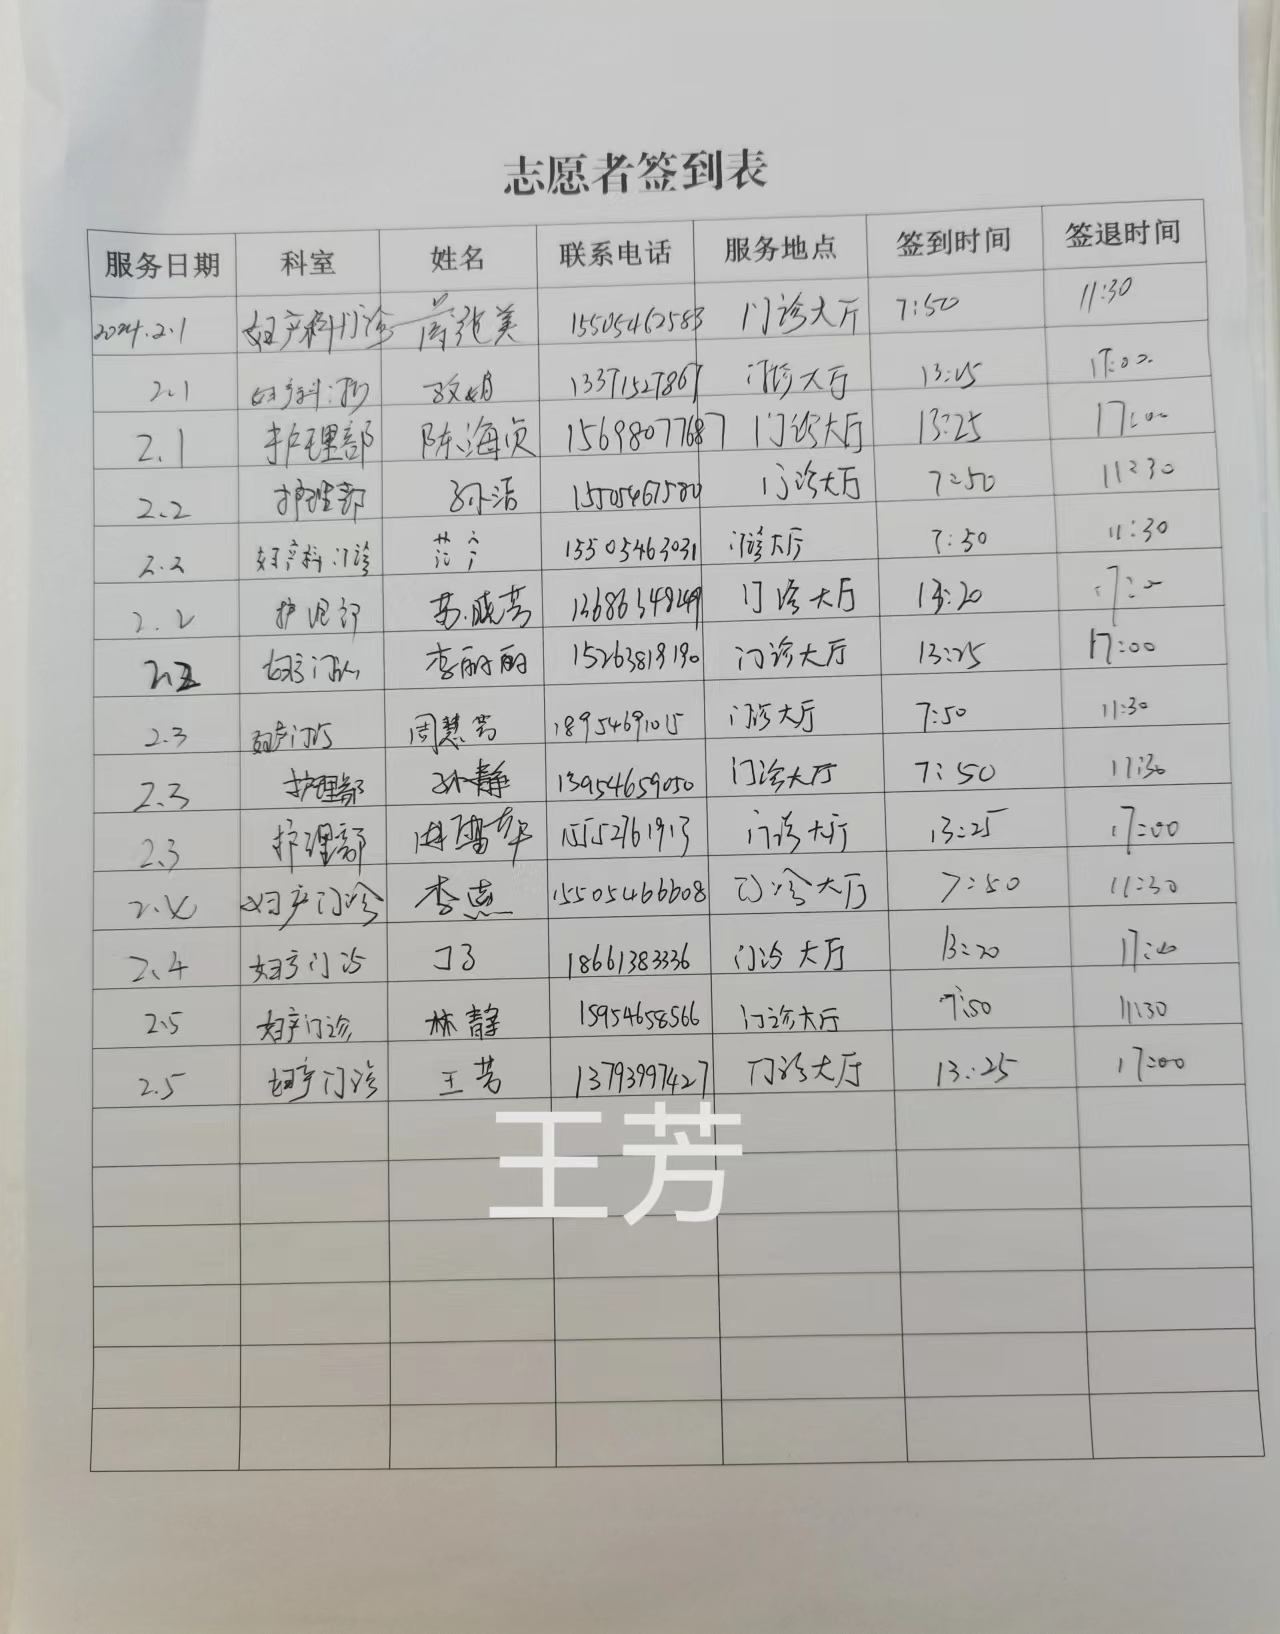 志愿者签到表
服务日期 科室 姓名 联系电话 服务地点 签到时间 签退时间
2024.2.1 妇产科门诊 美 15505462583 门诊大厅 7:50 11:30
2.1 妇产科门诊 13371527867 门诊大厅 13:25 17:00
2.1 护理部 陈海贞 15698077687 门诊大厅 13:25 17:00
2.2 护理部 孙洁 15505467580 门诊大厅 7:50 11:30
2.2 妇产科门诊 15505463031 门诊大厅 7:50 11:30
2.2 护理部 苏晓芳 门诊大厅 13:20 17:00
2.2 妇产门诊 李丽丽 15263819190 门诊大厅 13:25 17:00
2.3 妇产门诊 周慧芳 18954691015 门诊大厅 7:50 11:30
2.3 护理部 孙静 13954659050 门诊大厅 7:50 11:30
2.3 护理部 15552761913 门诊大厅 13:25 17:00
2.4 妇产门诊 李惠 15505466608 门诊大厅 7:50 11:30
2.4 妇产门诊 18661383336 门诊大厅 13:20 17:00
2.5 妇产门诊 林静 15954658566 门诊大厅 7:50 11:30
2.5 妇产门诊 王芳 13793997427 门诊大厅 13:25 17:00
王芳